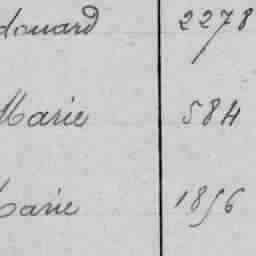 douard 2278
Marie 584
Marie 1856